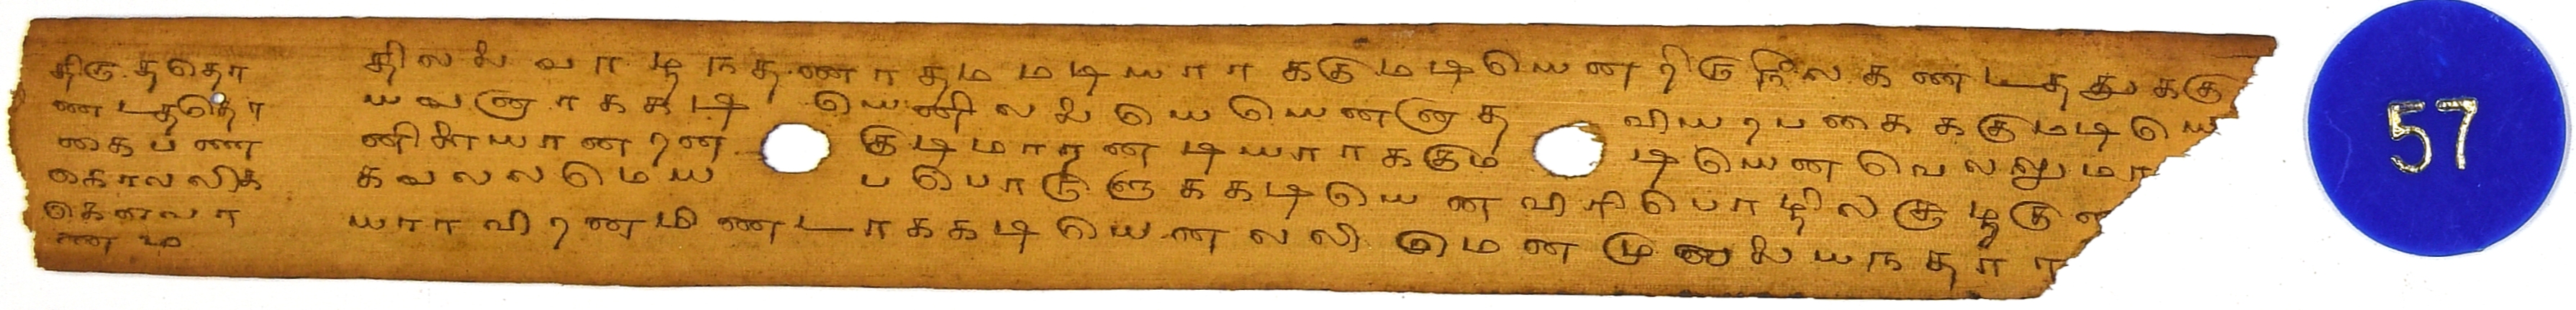 திருததொ
ணடததொ
கைபண
கொலலிக
கௌவா
ணம
திலலைவாழநதணரதமமடியாரககுமடியெனறிருநிலகணடததுககு
யவனாரககடி யெனிலலையெயெனனாத வியறபகைககுமடியெ
னிளையானறன குடிமாறனடியாரககும டியெனவெலலுமா
கவலலமெய பபொருளுககடியெனவிரிபொழிலசூழகுன
யாரவிறனமிணடரககடியெனலலி மெனமுலலையநதார
57